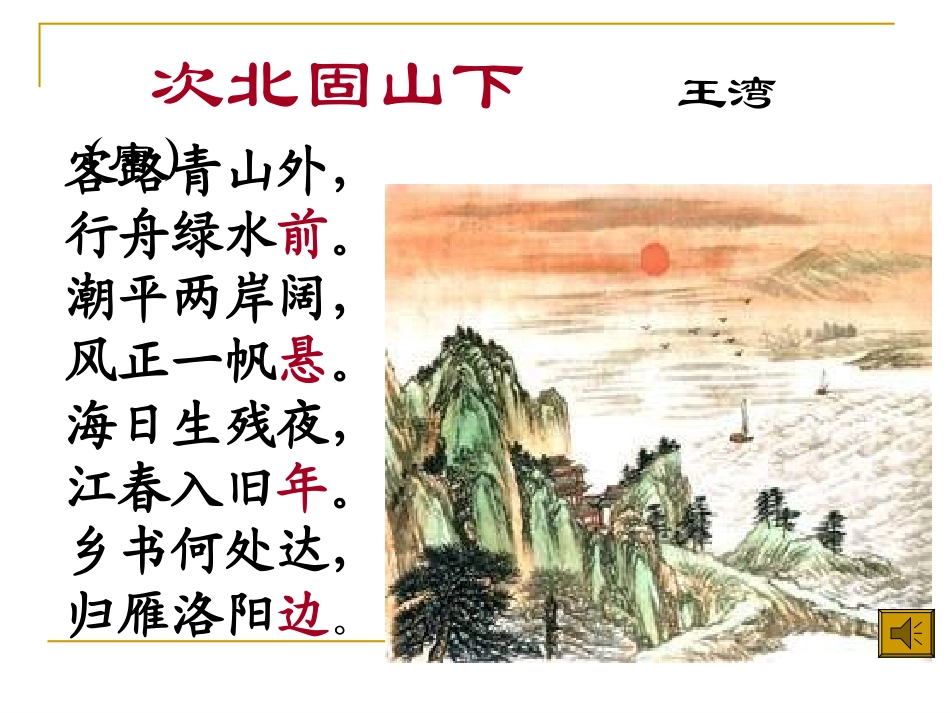 次北固山下 王湾
(唐)
客路青山外，
行舟绿水前。
潮平两岸阔，
风正一帆悬。
海日生残夜，
江春入旧年。
乡书何处达，
归雁洛阳边。